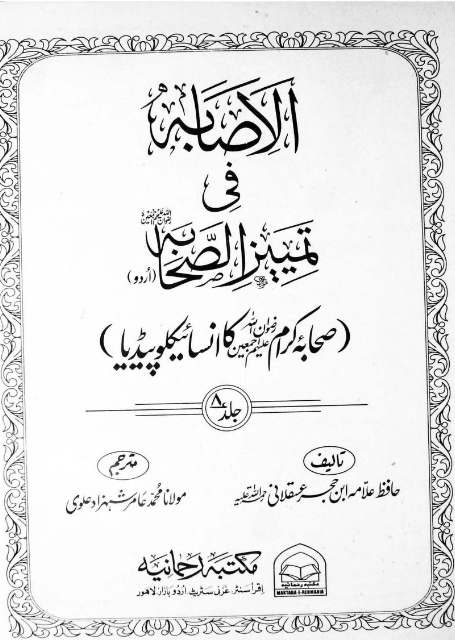 الاصابہ
فی
تمییز الصحابہ رضوان اللہ علیہم اجمعین (اُردو)
(صحابۂ کرام رضوان اللہ علیہم اجمعین کا انسائیکلوپیڈیا)
جلد ۸
تالیف
حافظ علّامہ ابن حجر عسقلانی رحمۃ اللہ علیہ
مترجم
مولانا محمد عامر شہزاد علوی
مکتبہ رحمانیہ
اِقرأ سنٹر غزنی سٹریٹ اُردو بازار لاہور
مکتبہ رحمانیہ
MAKTABA-E-REHMANIA